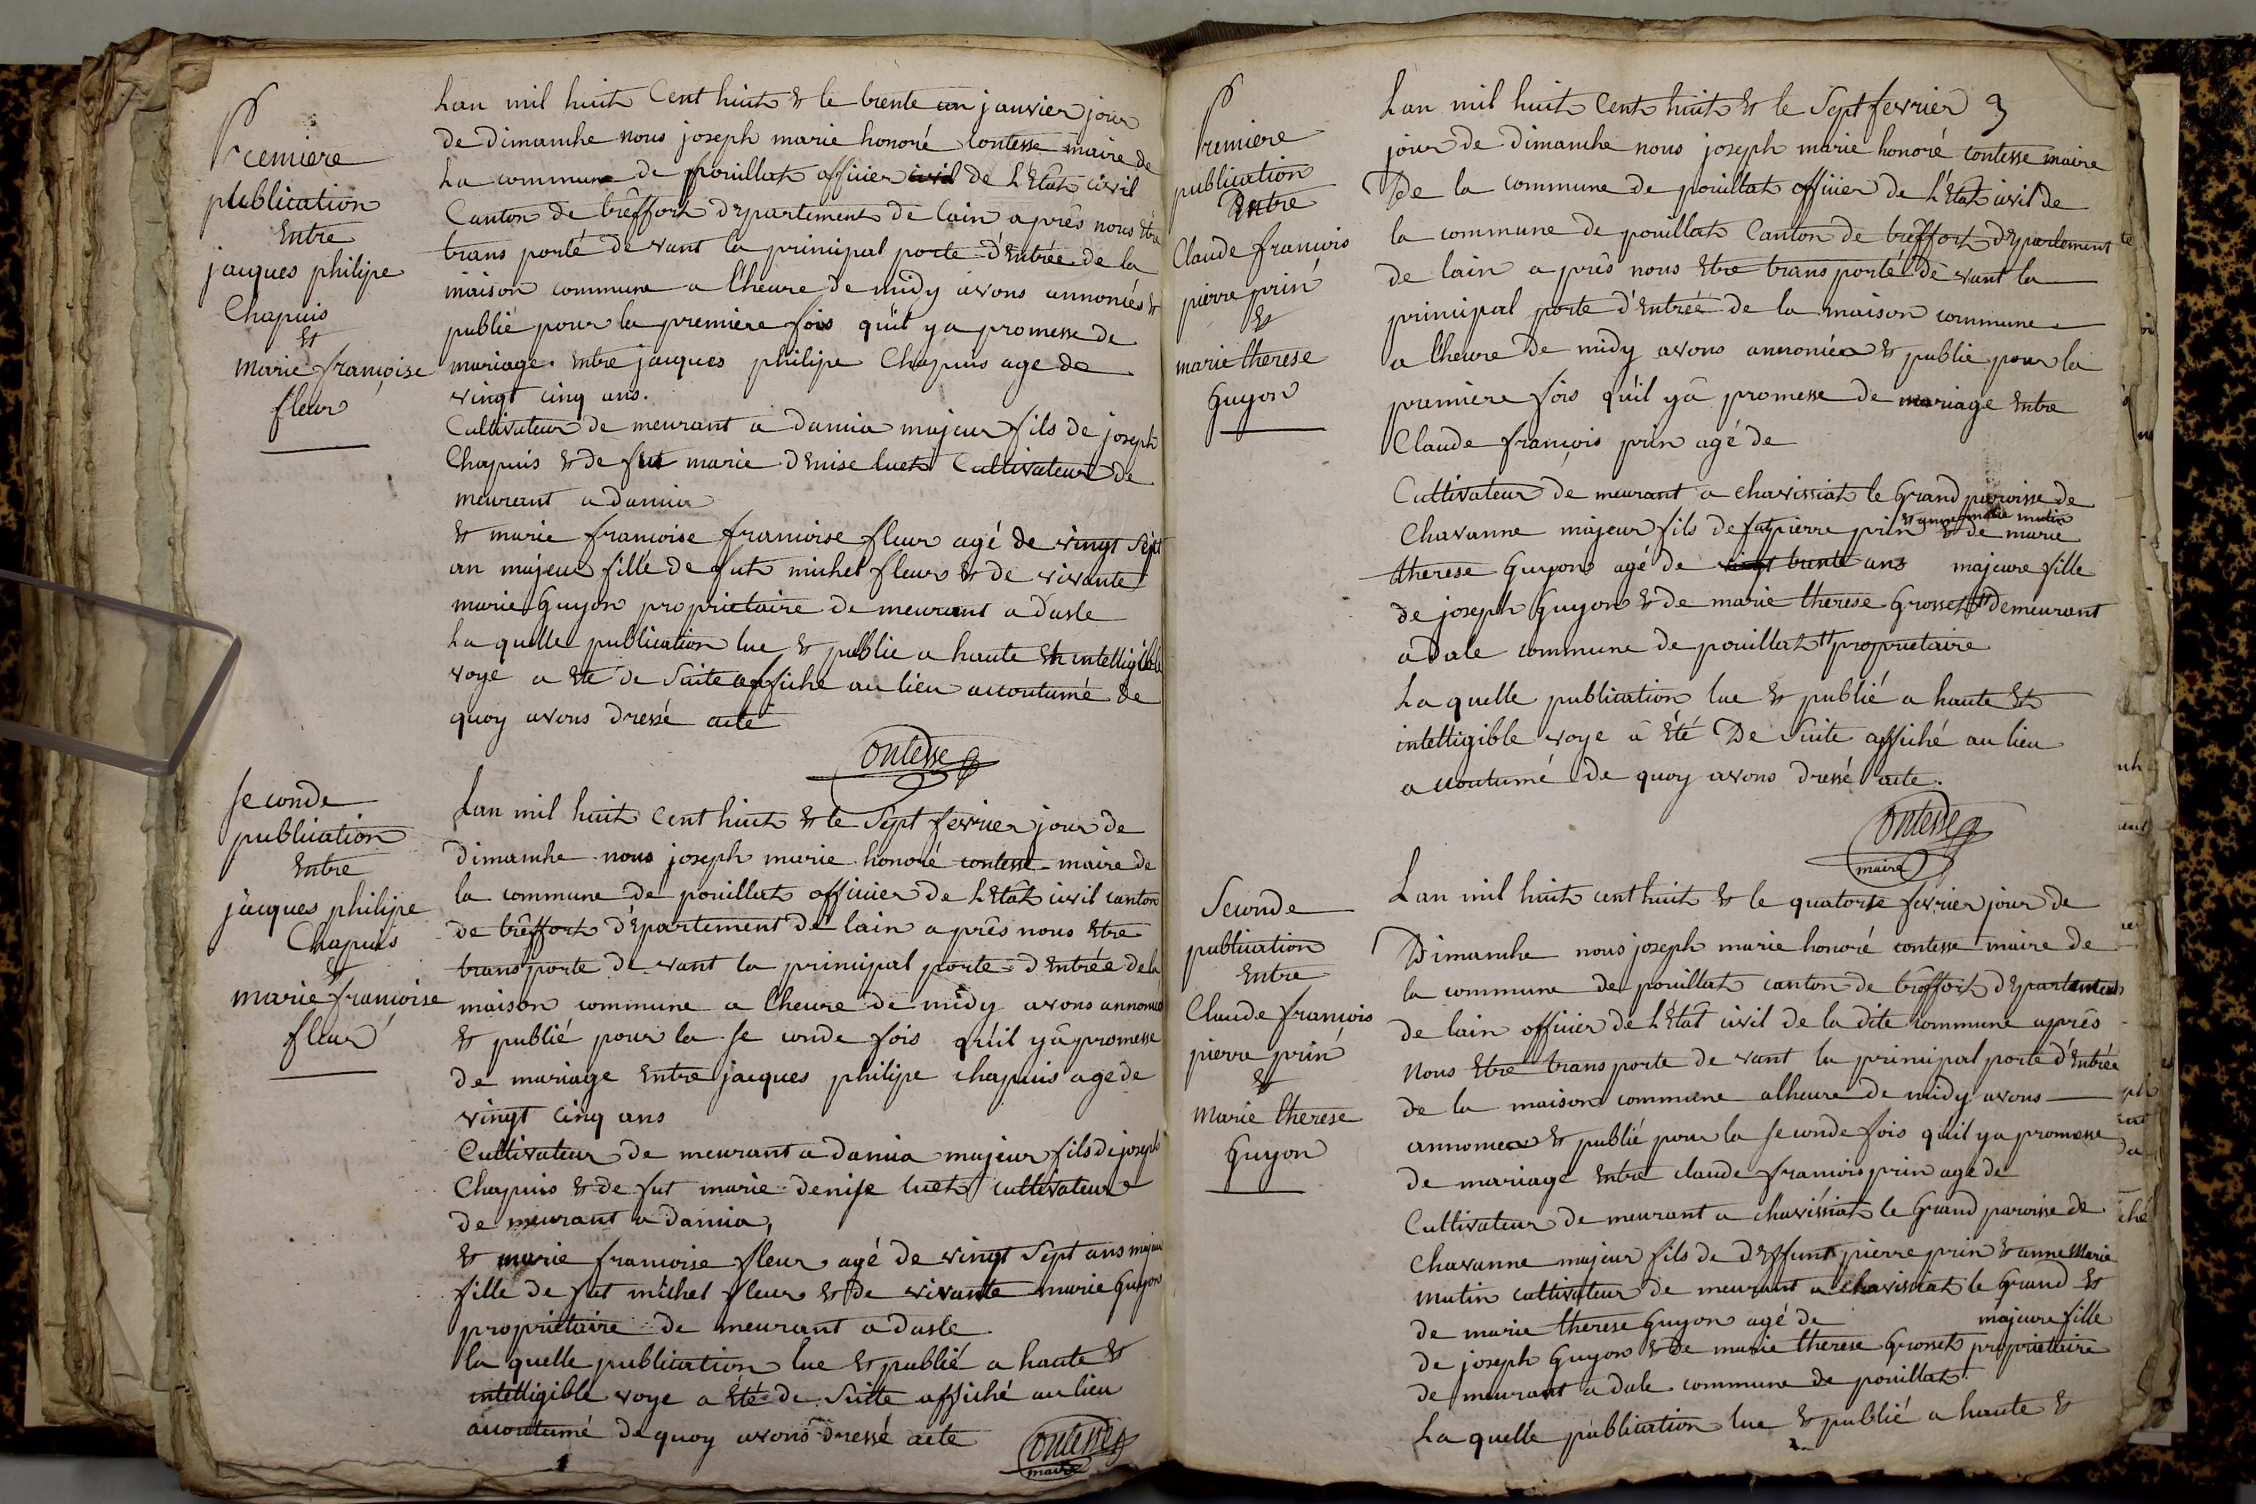 Premiere
publication
Entre
jacques philipe
Chapuis
Et
marie françoise
fleur
Lan mil huit Cent huit & le trente un janvier jour
de Dimanche nous joseph marie honoré Contesse maire de
La commune de pouillat officier civil de L'Etat civil
Canton de treffort departement de Lain après nous Etre
trans porté de vant la principal porte d'Entrée de la
maison commune a l'heure de midy avons annoncés &
publié pour la premiere fois qu'il ya promesse de
mariage Entre jacques philipe Chapuis age de
vingt cinq ans.
Cultivateur de meurant a damia majeur fils de joseph
Chapuis & de fut marie denise luet Cultivateur de
meurant a damia
& marie francoise francoise fleur agé de vingt sept
an majeur fille de fut michel fleur & de vivante
marie Guyon proprietaire de meurant a dasle
La quelle publication lue & publie a haute Et intelligible
voye a Eté de Suite affiché au lieu accoutumé de
quoy avons dressé acte
Contesse
Seconde
publication
Entre
jacques philipe
Chapuis
&
marie francoise
fleur
Lan mil huit Cent huit & le Sept fevrier jour de
Dimanche nous joseph marie honoré contesse maire de
la commune de pouillat officier de L'Etat civil canton
de treffort département de lain après nous Etre
transporte de vant la principal porte d'Entrée de la
maison commune a l'heure de midy avons annoncé
& publié pour la se conde fois qu'il ya promesse
de mariage Entre jacques philipe chapuis age de
vingt cinq ans
Cultivateur de meurant a damia majeur fils de joseph
Chapuis & de fut marie denise luet cultivateur
de meurant a damia,
& marie francoise fleur agé de vingt Sept ans majeur
fille de fut michel fleur & de vivante marie Guyon
proprietaire de meurant a dasle
la quelle publication lue & publié a haute &
intelligible voye a Eté de Suitte affiché au lieu
accoutumé de quoy avons dressé acte
Contesse
maire
Premiere
publication
Entre
Claude francois
pierre prin
&
marie therese
Guyon
Lan mil huit Cent huit & le Sept fevrier
jour de Dimanche nous joseph marie honoré contesse maire
De la commune de pouillat officier de L'Etat civil de
la commune de pouillat Canton de treffort departement
de lain après nous Etre trans porté de vant la
principal porte d'Entrée de la maison commune
a l'heure de midy avons annoncée & publie pour la
premiere fois qu'il ya promesse de mariage Entre
Claude françois prin agé de
Cultivateur de meurant a chavissiat le Grand paroisse de
& anne marie mutin
Chavanne majeur fils de fut pierre prin & de marie
therese Guyon agé de vingt trente ans majeure fille
de joseph Guyon & de marie therese Grosset demeurant
a Dale commune de pouillat proprietaire
La quelle publication lue & publié a haute Et
intelligible voye a Eté De Suite affiché au lieu
accoutumé de quoy avons dressé acte.
Contesse
maire
Seconde
publication
Entre
Claude francois
pierre prin
&
Marie therese
Guyon
Lan mil huit cent huit & le quatorse fevrier jour de
Dimanche nous joseph marie honoré contesse maire de
la commune de pouillat canton de treffort departement
de lain officier de L'Etat civil de la dite commune après
Nous Etre trans porte de vant la principal porte d'Entrée
de la maison commune a lheure de midy avons
annoncer & publié pour la se conde fois qu'il ya promesse
de mariage Entre claude francois prin age de
Cultivateur de meurant a chavissiat le Grand paroisse de
Chavanne majeur fils de deffunt pierre prin & anne Marie
mutin cultivateur de meurant a chavissiat le Grand &
de marie therese Guyon agé de majeure fille
de joseph Guyon & de marie therese Grosset proprietaire
de meurant a dale commune de pouillat.
La quelle publication lue & publié a haute &